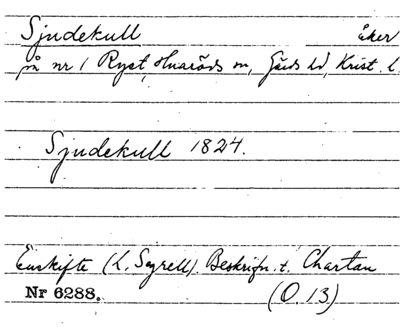 Sjudekull åker
på nr 1 Ryet, Huaröds sn, Gärds hd, Krist. l.
Sjudekull 1824.
Enskifte (L. Segrell). Beskrifn. t. Chartan
Nr 6288. (O. 13)